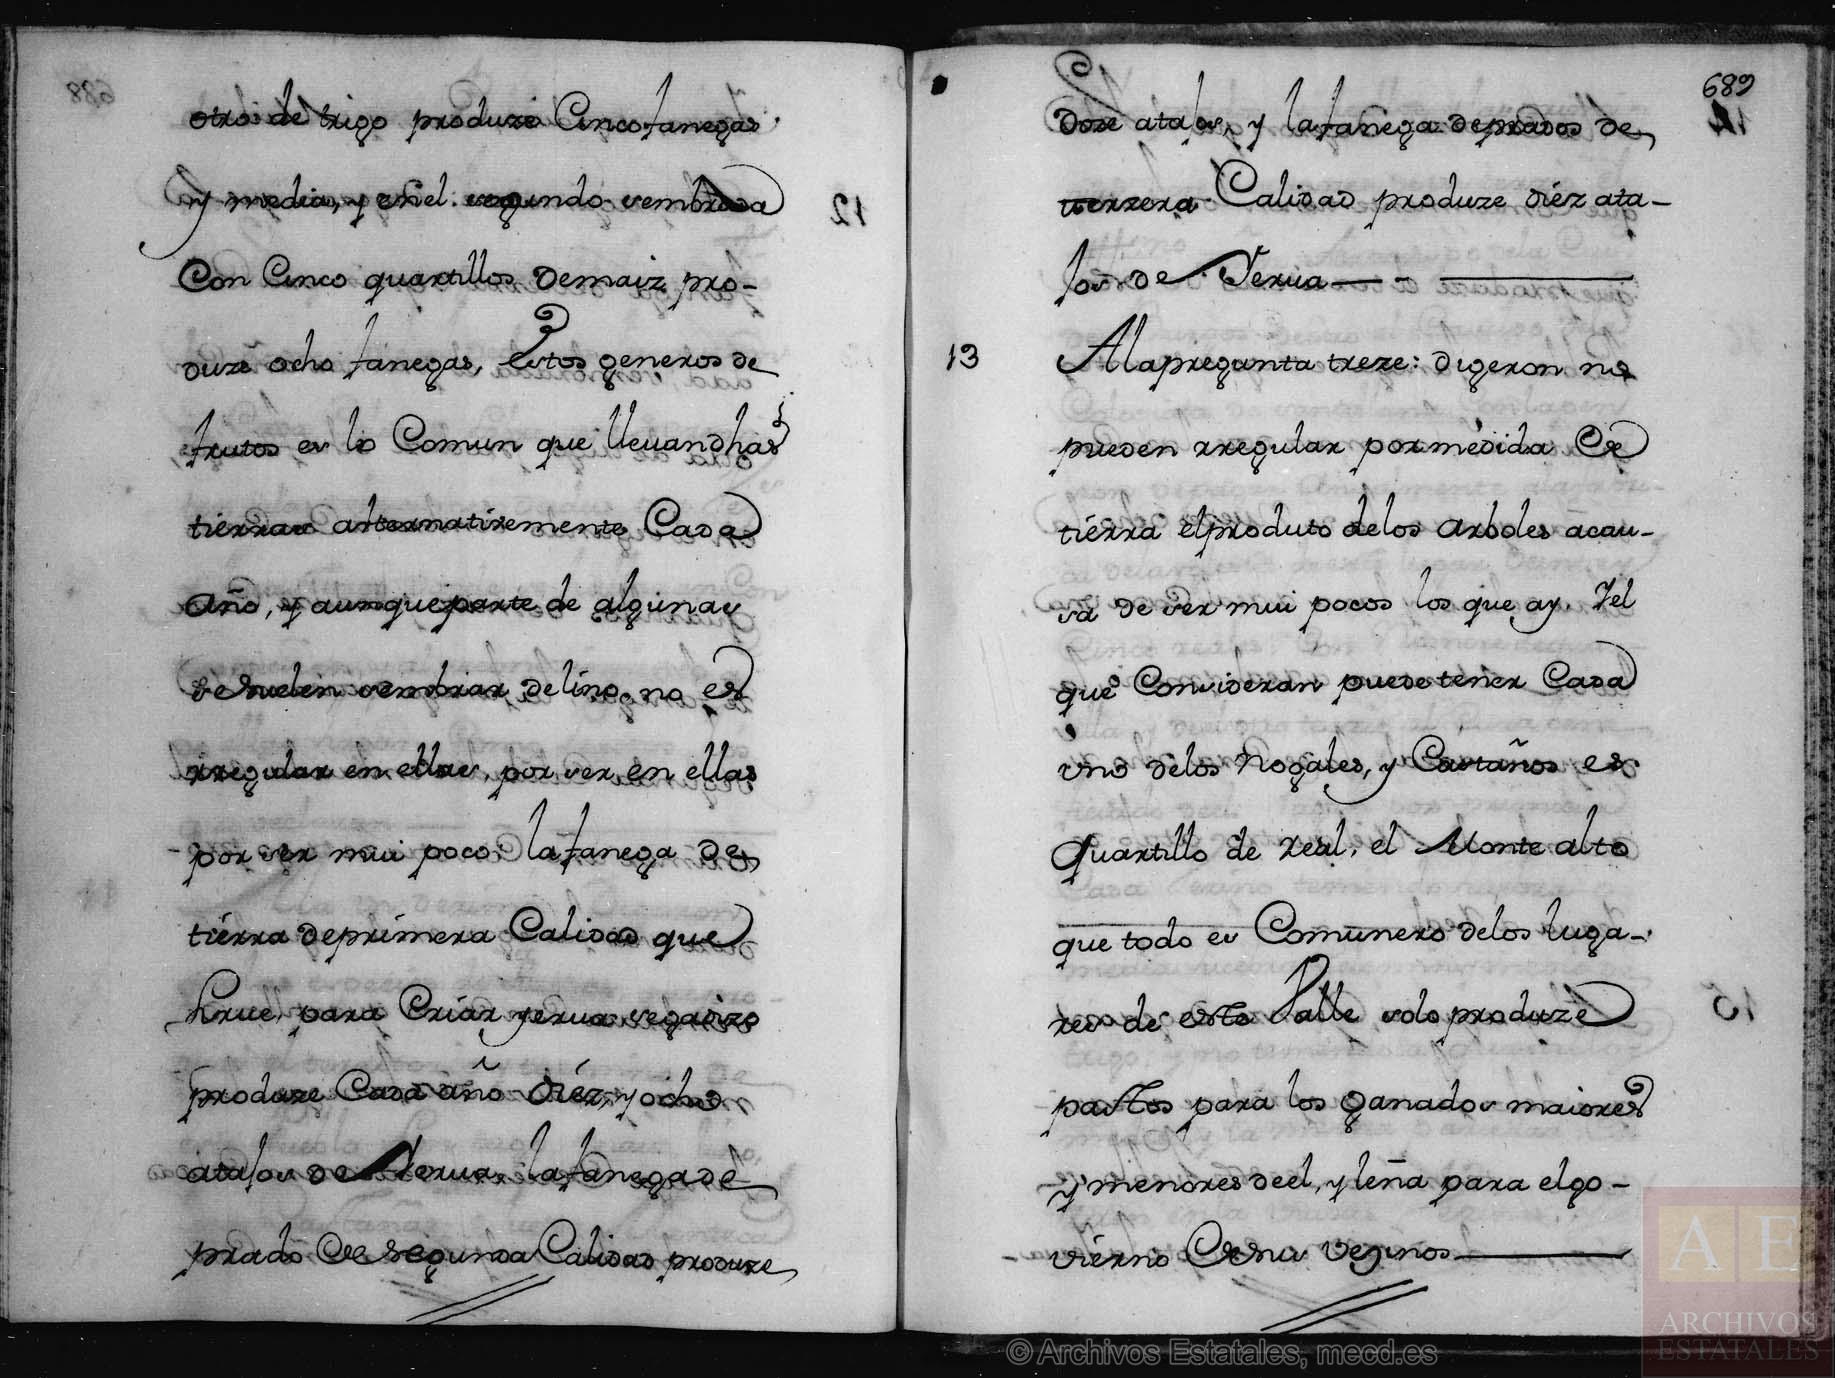 otro de trigo produze Cinco fanegas
y media, y en el segundo sembrada
Con Cinco quartillos demaiz pro-
duze ocho fanegas, Estos generos de
frutos es lo Comun que lleuan dhas
tierras alternatiuemente Cada
año, y aunque parte de algunas
se suelen sembrar de lino, no es
rregular en ellas, por ser en ellas
por ser mui poco: la fanega de
tierra de primera Calidad que
sirue para Criar yerua segadizo
produze Cada año Diéz, y ocho
atajos de Yerua, la fanega de
prado de segunda Calidad produze
689
doze atajos, y la fanega de prados de
terzera Calidad produze diéz ata-
jos de Yerua
13
A la pregunta treze: digeron no
pueden rregular por medida de
tierra el produto de los arboles acau-
sa de ser mui pocos los que ay. Y el
que Consideran puede tener Cada
uno delos Nogales, y Castaños es
quartillo de real, el Monte alto
que todo es Comunero delos luga-
res de este Valle solo produze
pastos para los ganados maiores
y menores de el, y leña para el go-
vierno de sus Vezinos
© Archivos Estatales, mecd.es
AE
ARCHIVOS
ESTATALES